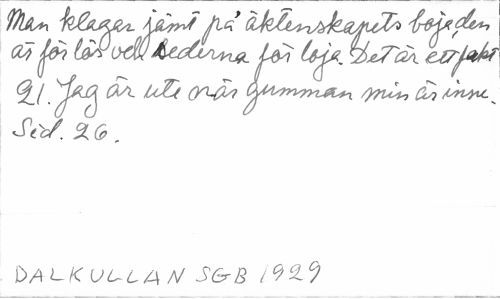 Man klagar jämt på äktenskapets boja, den
är för lös och lederna för loja. Det är ett fakt
21. Jag är ute när gumman min är inne.
Sid. 26.
DALKULLAN SGB 1929